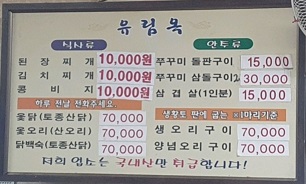 유림옥
식사류
된장찌개 10,000원
김치찌개 10,000원
콩비지 10,000원
하루 전날 전화주세요.
옻닭(토종산닭) 70,000
옻오리(산오리) 70,000
닭백숙(토종산닭) 70,000
안주류
쭈꾸미 돌판구이 15,000
쭈꾸미 삼돌구이 30,000
삼겹살(1인분) 15,000
생황토 판에 굽는 ※1마리기준
생오리구이 70,000
양념오리구이 70,000
저희 업소는 국내산만 취급합니다!